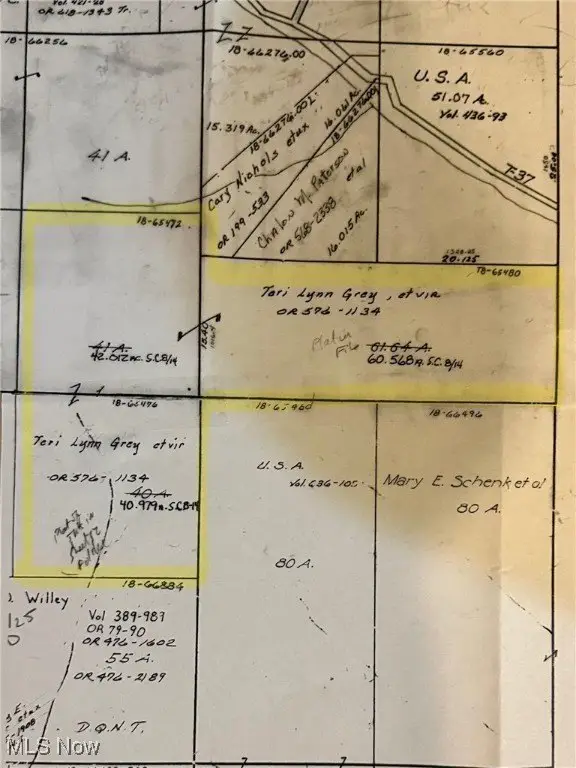 Vol. 421-20
OR 618-1343 Tr.
18-66256
41 A.
18-66276.00
18-65560
U.S.A.
51.07 A.
Vol. 436-93
T-37
15.319 Ac.
18-66276.002
16.061 Ac.
18-66276.001
Cary Nichols etux
OR 199-583
OR 568-2338
etal
16.015 Ac.
20.125
18-65472
18-65480
Teri Lynn Grey, etvir
OR 576-1134
Plat in
File
61.64 A.
60.568 A. S.C. 8/14
18.40
41 A.
42.012 AC. S.C. 8/14
18-65476
18-65460
18-66496
Teri Lynn Grey etvir
OR 576-1134
40 A.
40.979 A. S.C. 8-14
U.S.A.
Vol. 636-105
80 A.
Mary E. Schenk etal
80 A.
18-66384
Willey
125
Vol 389-987
OR 79-90
OR 476-1602
55 A.
OR 476-2189
D.Q.N.T.
MLS Now